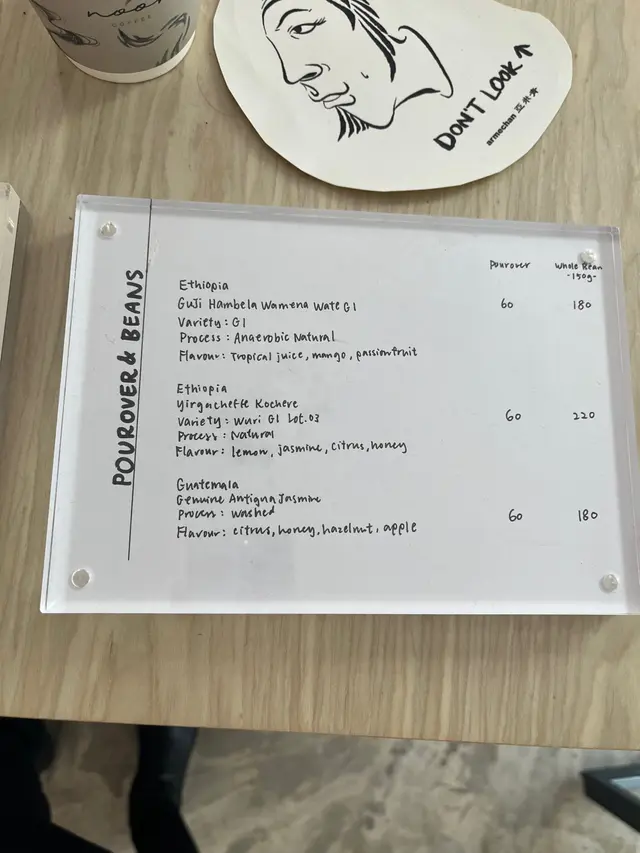 noon
COFFEE
DON'T LOOK ↑
armechan 亞米本
POUROVER & BEANS
Pourover
Whole Bean
-150g-
Ethiopia
Guji Hambela Wamena Wate G1
60
180
Variety : G1
Process : Anaerobic Natural
Flavour : Tropical juice, mango, passionfruit
Ethiopia
Yirgacheffe Kochere
Variety : Wuri G1 Lot.03
60
220
Process : Natural
Flavour : lemon, jasmine, citrus, honey
Guatemala
Genuine Antigua Jasmine
Process : washed
60
180
Flavour : citrus, honey, hazelnut, apple